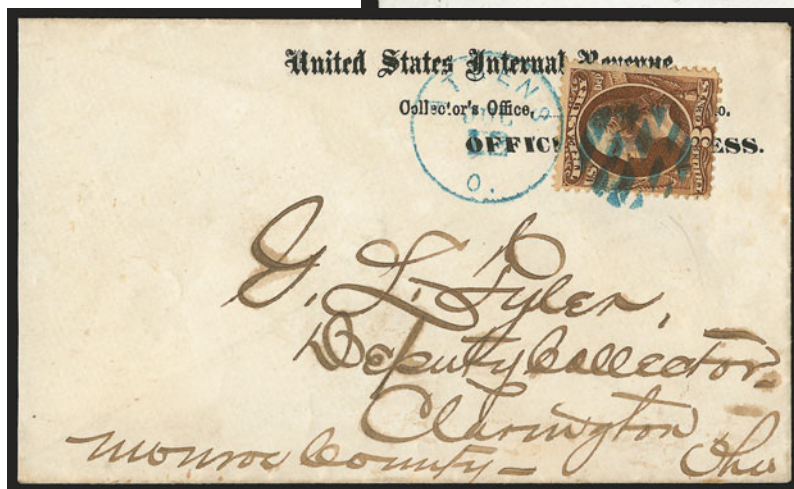 United States Internal Revenue
Collector's Office,
OFFIC ESS.
ATHENS
O.
G. L. Tyler,
Deputy Collector.
Clarington
Monroe County - Ohio